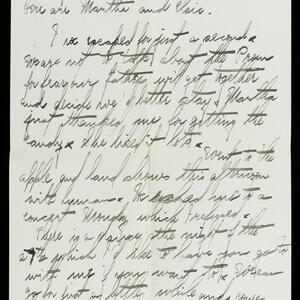 here are Marthe and Elsie.
I've escaped for just a second &
we are not to talk about the Prom
for fear our father will get together
and decide we'd better stay. Martha
just thanked me for getting the
candy & she liked it lots.
Went to the
apple and land shows this afternoon
with
me to a
concert Monday which I refused.
There is a the night of the
which I'd like to have you go to
with me if you want to.
go for just a little while and